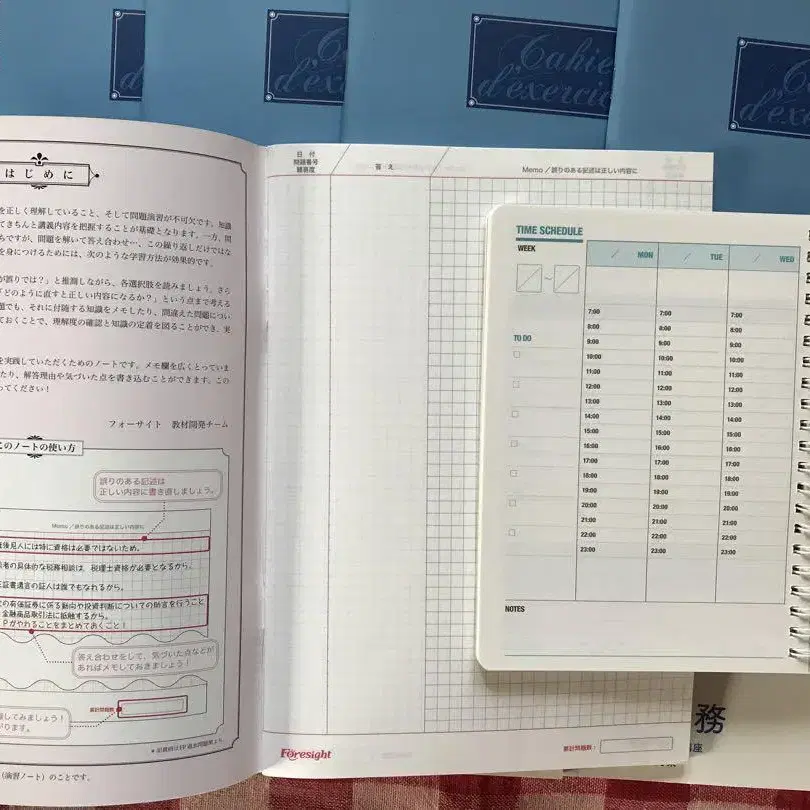 Cahie
d'exercic
Cahier
d'exe
はじめに
を正しく理解していること、そして問題演習が不可欠です。知識
てきちんと講義内容を把握することが基礎となります。一方、問
ちですが、問題を解いて答え合わせ…、この繰り返しだけでは
を身につけるためには、次のような学習方法が効果的です。
が誤りでは?」と推測しながら、各選択肢を読みましょう。さら
「どのように直すと正しい内容になるか?」という点まで考える
題でも、それに付随する知識をメモしたり、間違えた問題につい
ておくことで、理解度の確認と知識の定着を図ることができ、実
を実践していただくためのノートです。メモ欄を広くとっていま
たり、解答理由や気づいた点を書き込むことができます。この
ってください!
フォーサイト 教材開発チーム
このノートの使い方
誤りのある記述は
正しい内容に書き直しましょう。
Memo/誤りのある記述は正しい内容に
後見人には特に資格は必要ではないため。
者の具体的な税務相談は、税理士資格が必要となるから。
正証書遺言の証人は誰でもなれるから。
の有価証券に係る動向や投資判断についての助言を行うこと
金融商品取引法に抵触するから。
Pがやれることをまとめておくこと!
答え合わせをして、気づいた点などが
あればメモしておきましょう!
累計問題数
してみましょう!
がります。
(演習ノート)のことです。
日 付
問題番号
難易度
答 え
Memo/誤りのある記述は正しい内容に
Foresight
累計問題数:
TIME SCHEDULE
WEEK
/ MON
/ TUE
/ WED
~
TO DO
7:00 7:00 7:00
8:00 8:00 8:00
9:00 9:00 9:00
10:00 10:00 10:00
11:00 11:00 11:00
12:00 12:00 12:00
13:00 13:00 13:00
14:00 14:00 14:00
15:00 15:00 15:00
16:00 16:00 16:00
17:00 17:00 17:00
18:00 18:00 18:00
19:00 19:00 19:00
20:00 20:00 20:00
21:00 21:00 21:00
22:00 22:00 22:00
23:00 23:00 23:00
NOTES
務
講座